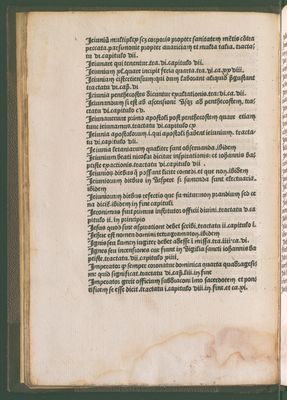 Ieiuniū multiplex scz corporis propter sanitatem mētis cōtra
peccata. parsimonie propter auariciam et multa talia. tracta-
tu vi. capitulo vii.
Ieiunare qui tenentur. tra. vi. capitulo vii.
Ieiunium incipit feria quarta. tra. vi. ca.
Ieiunium cisterciensium qui dum laborant aliquid gustant
tractatu vi. ca. vi
Ieiunia penthecostes dicuntur exultationis. tra. vi. ca. vii.
Ieiunandum si est ab ascensione vsq; ab penthecostem. trac-
tatu vi. capitulo
Ieiunauerunt primo apostoli post penthecostem quare etiam
tunc ieiunamus. tractatu vi. capitulo
Ieiunia apostolorum. i. que apostoli habent ieiunium. tracta-
tu vi. capitulo vii.
Ieiunia letaniarum qualiter sunt obseruanda. ibidem
Ieiunium beati nicolai dicitur inspirationis: et iohannis bap-
tiste exactionis. tractatu vi. capitulo vii
Ieiuniorum diebus possunt licite comedi et que non. ibidem
Ieiuniorum diebus in vespere si sumenda sunt electuaria.
ibidem
Ieiuniorum diebus refectio que sit vtrum prandium sed ce-
na dicit. ibidem in fine capituli
Ieronimus fuit primus institutor officii diuini. tractatu v. ca-
pitulo ii. in principio
Iesus quod sine aspiratione debet scribi. tractatu ii. capitulo i.
Iesus est nomen domini tetragramaton. ibidem
Ignis seu lumen iugiter debet adesse i missa. tra. iiii. ca. vi.
Ignes seu incensiones cur fiunt in vigilia sancti iohannis ba-
ptiste. tractatu vii. capitulo
Imperator semper coronatur dominica quarta quadragesi-
me quid significat. tractatu vi. ca. in fine
Imperator gerit officium subdiaconi imo sacerdotem et ponti-
ficem se esse dicit. tractatu i. capitulo viii. in fine. et ca.